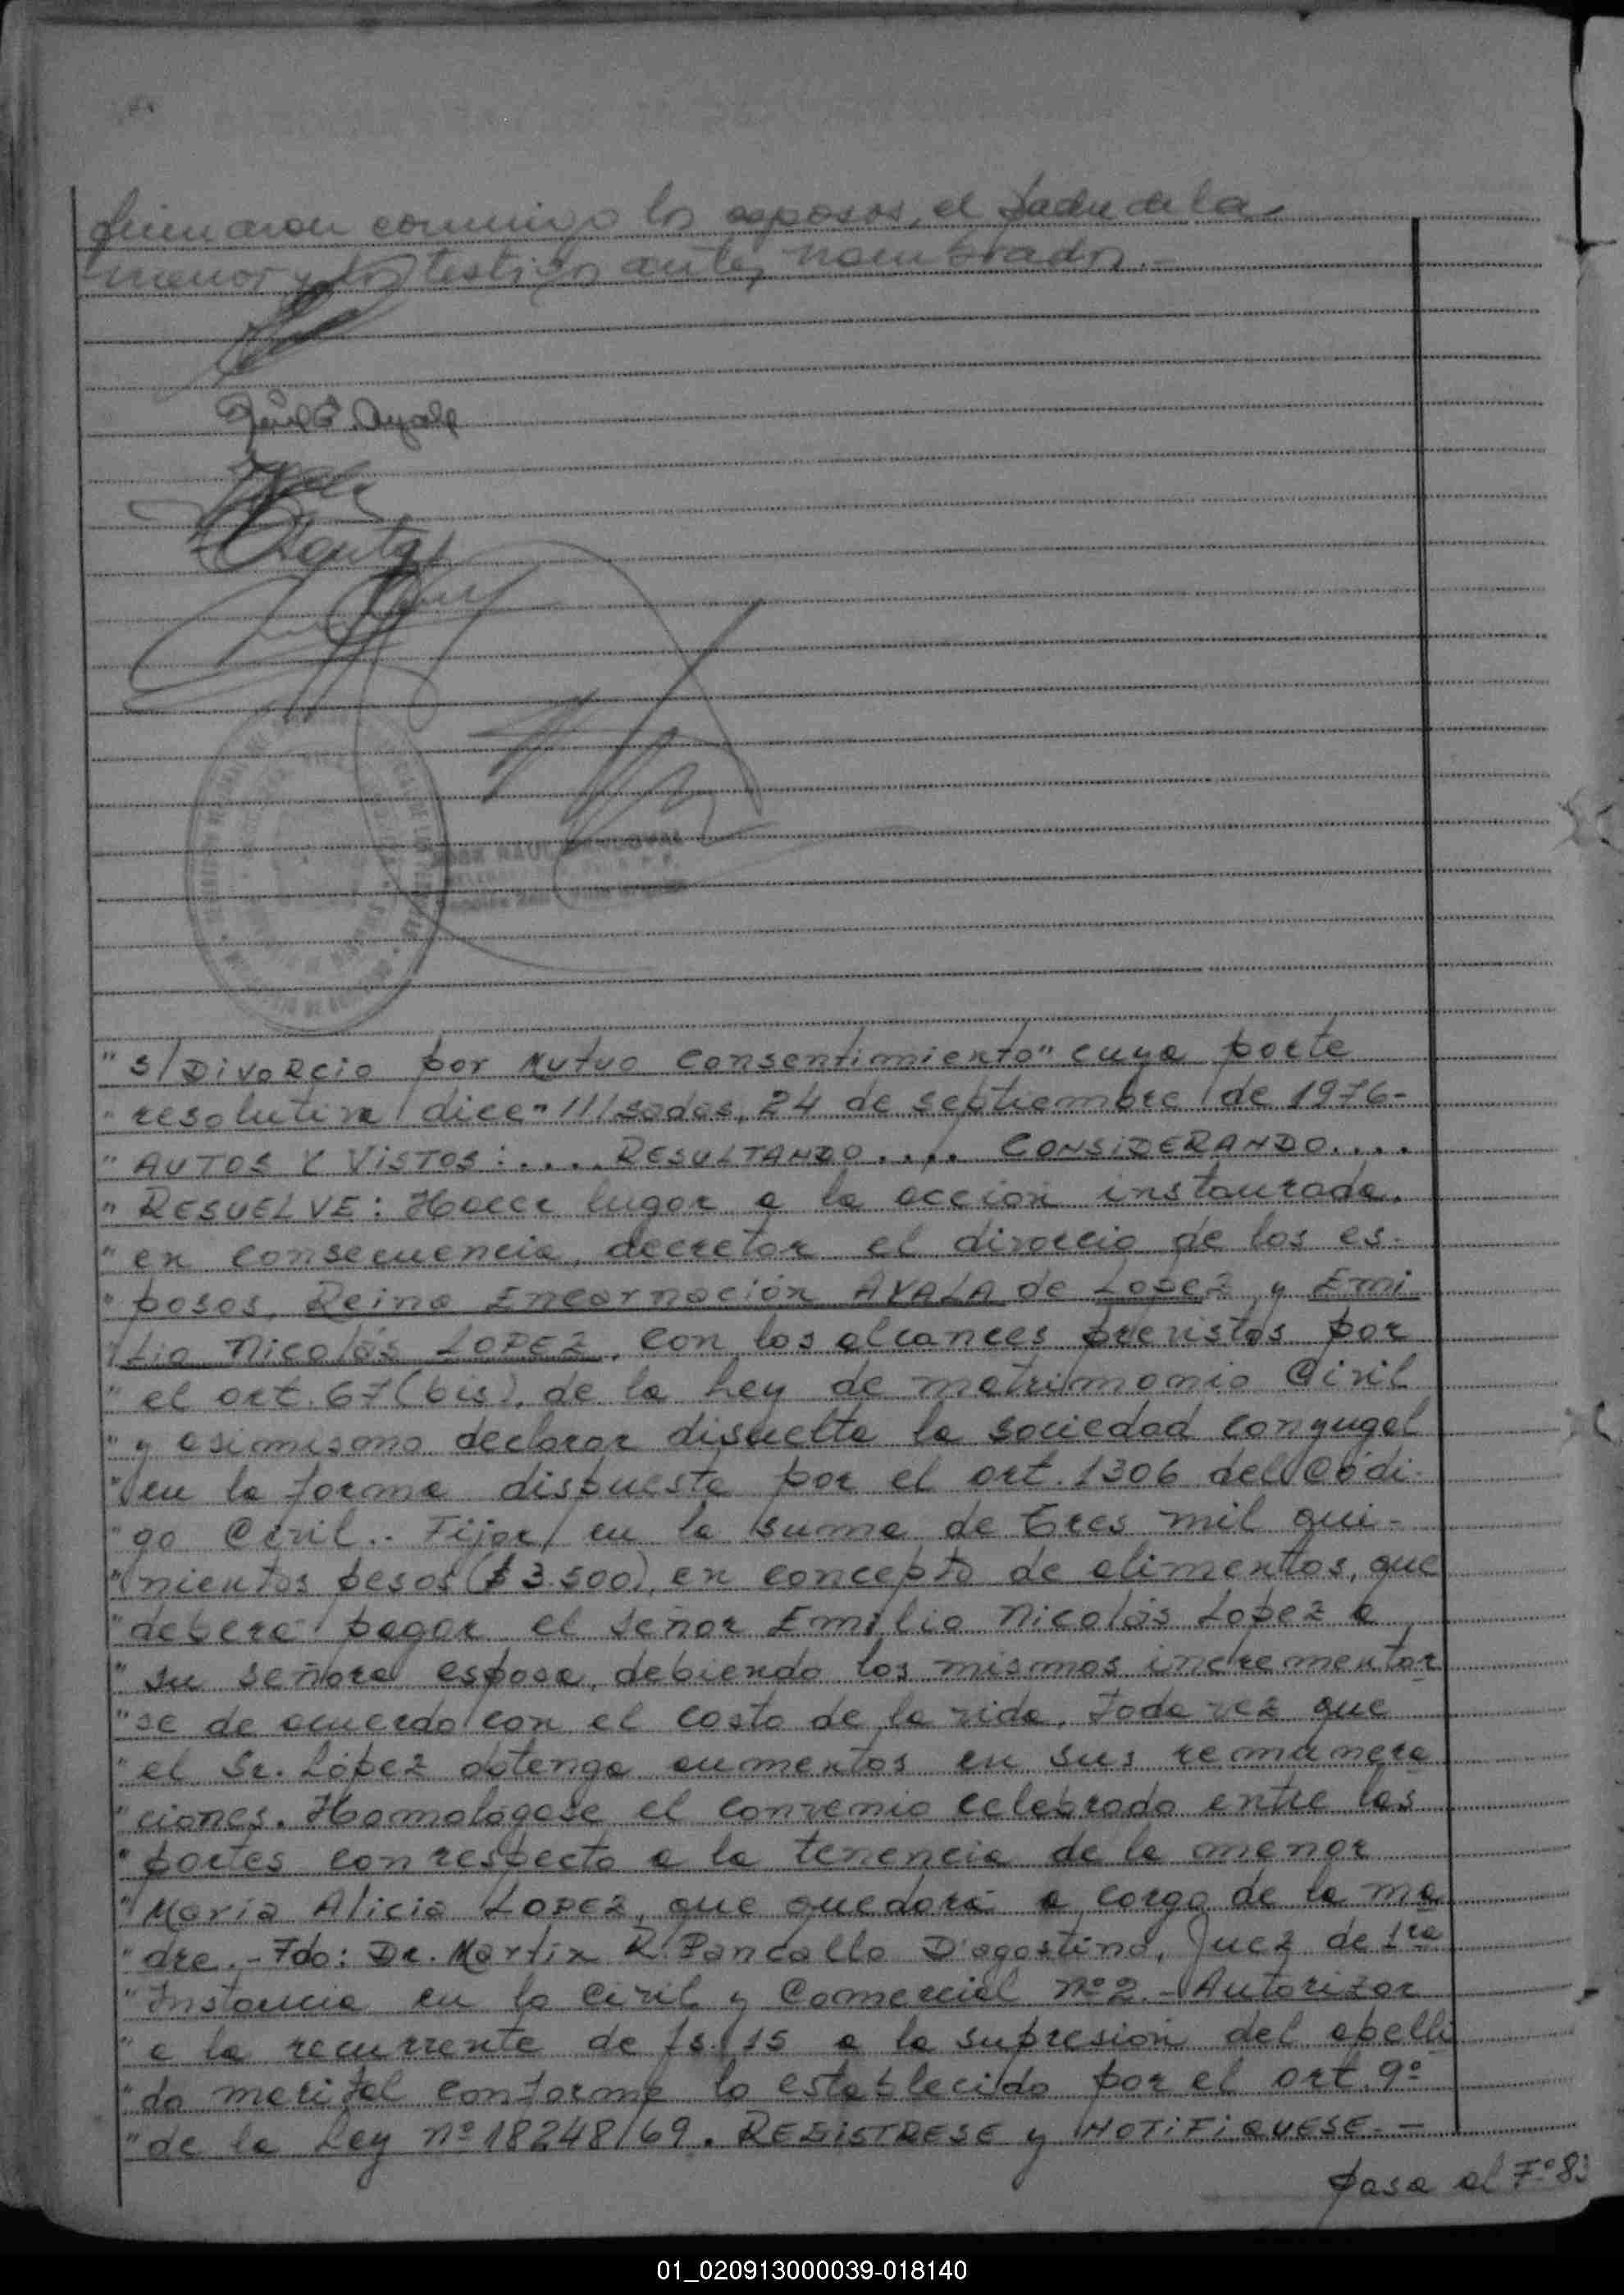 firmaron conmigo los esposos, el padre de la
menor y los testigos antes nombrados.-
" S/ Divorcio por Mutuo Consentimiento" cuya parte
" resolutiva dice "///sadas, 24 de septiembre de 1976-
" AUTOS Y VISTOS: .... RESULTANDO .... CONSIDERANDO....
" RESUELVE: Hacer lugar a la acción instaurada,
" en consecuencia, decretar el divorcio de los es-
" posos, Reina Encarnación AYALA de Lopez y Emi
" lio Nicolás LOPEZ, con los alcances previstos por
" el art. 67 (bis), de la Ley de matrimonio Civil
" y asimismo declarar disuelta la sociedad conyugal
" en la forma dispuesta por el art. 1306 del Códi-
" go Civil.- Fijar en la suma de Tres mil qui-
" nientos pesos ($ 3.500), en concepto de alimentos, que
" deberá pagar el señor Emilio Nicolás Lopez a
" su señora esposa, debiendo los mismos incrementar
" se de acuerdo con el costo de la vida, toda vez que
" el Sr. López obtenga aumentos en sus remunera
" ciones. Homológase el convenio celebrado entre las
" partes con respecto a la tenencia de la menor
" María Alicia LOPEZ, que quedará a cargo de la ma
" dre.- Fdo: Dr. Martín R. Pancallo D'agostino, Juez de 1ra
" Instancia en lo Civil y Comercial nº 2.- Autorizar
" a la recurrente de fs. 15 a la supresión del apelli
" do marital conforme lo establecido por el art. 9º
" de la Ley nº 18248/69. REGISTRESE y NOTIFIQUESE.-
pasa al Fº 83
01_020913000039-018140